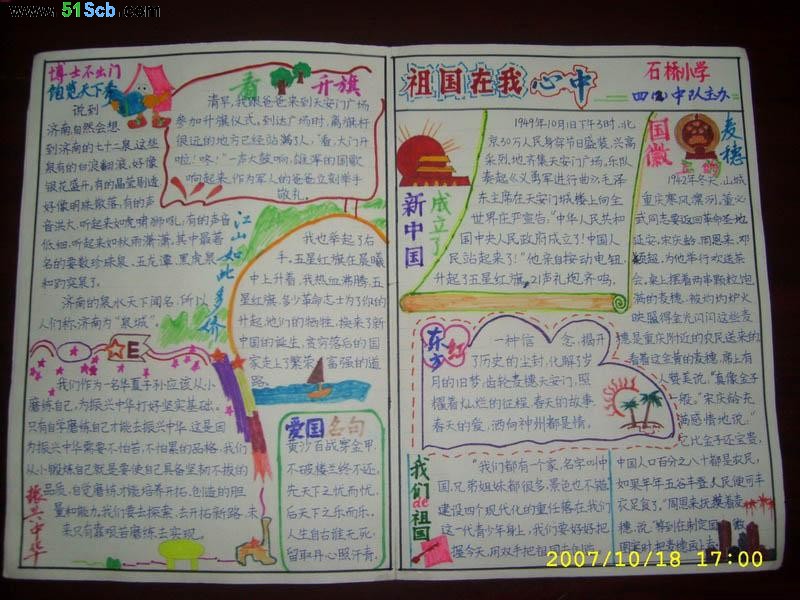 www.51Scb.com
博士不出门
饱览天下泰
说到
济南自然会想
到济南的七十二泉,这些
泉有的白浪翻滚,好像
银花盛开,有的晶莹剔透
好像明珠散落,有的声
音洪大,听起来如虎啸狮吼,有的声音
低细,听起来如秋雨潇潇,其中最著
名的要数珍珠泉、五龙潭、黑虎泉
和趵突泉了。
济南的泉水天下闻名,所以
人们称济南为“泉城”。
看升旗
清早,我跟爸爸来到天安门广场
参加升旗仪式,到达广场时,离旗杆
很近的地方已经站满了人,“看,大门开
啦!咚!”一声大鼓响,雄浑的国歌
响起来,作为军人的爸爸立刻举手
敬礼。
江山如此多娇
我也举起了右
手,五星红旗在晨曦
中上升着,我热血沸腾,五
星红旗,多少革命志士为了你的
升起,他们的牺牲,换来了新
中国的诞生,贫穷落后的国
家走上了繁荣富强的道
路。
E
我们作为一名华夏子孙应该从小
磨练自己,为振兴中华打好坚实基础。
只有自学磨练自己才能去振兴中华,这是因
为振兴中华需要不怕苦,不怕累的品格,我们
从小锻炼自己就是要使自己具备坚韧不拔的
品质,自觉磨练才能培养开拓、创造的胆
量和能力,我们要去探索、去开拓新路,未
来只有靠艰苦磨练去实现。
振兴中华
爱国名句
黄沙百战穿金甲,
不破楼兰终不还,
先天下之忧而忧,
后天下之乐而乐。
人生自古谁无死,
留取丹心照汗青。
祖国在我心中
石桥小学
中队主办
新中国成立了
1949年10月1日下午3时,北
京30万人民身穿节日盛装,兴高
采烈地齐集天安门广场,乐队
奏起《义勇军进行曲》,毛泽
东主席在天安门城楼上向全
世界庄严宣告:“中华人民共和
国中央人民政府成立了!中国人
民站起来了!”他亲自按动电钮,
升起了五星红旗,21声礼炮齐鸣。
国徽上的麦穗
1942年冬天,山城
重庆寒风凛冽,董必
武同志要返回革命圣地
延安,宋庆龄、周恩来、邓
颖超,为他举行欢送茶
会,桌上摆着两串颗粒饱
满的麦穗,被灼灼炉火
映照得金光闪闪这些麦
穗是重庆附近的农民送来的
看着这金黄的麦穗,席上有
人赞美说,“真像金子
一般。”宋庆龄充
满感情地说:“
它比金子还宝贵,
中国人口百分之八十都是农民,
如果年年五谷丰登,人民便可丰
衣足食了。”周恩来抚摸着麦
穗,说:“等到在制定国徽
东方红
一种信念,揭开
了历史的尘封,化解了岁
月的旧梦,齿轮麦穗天安门,照
耀着灿烂的征程,春天的故事
春天的爱,洒向神州都是情。
我们de祖国
“我们都有一个家,名字叫中
国,兄弟姐妹都很多,景色也不错
建设四个现代化的重任落在我们
这一代青少年身上,我们要好好把
握今天,用双手把
2007/10/18 17:00